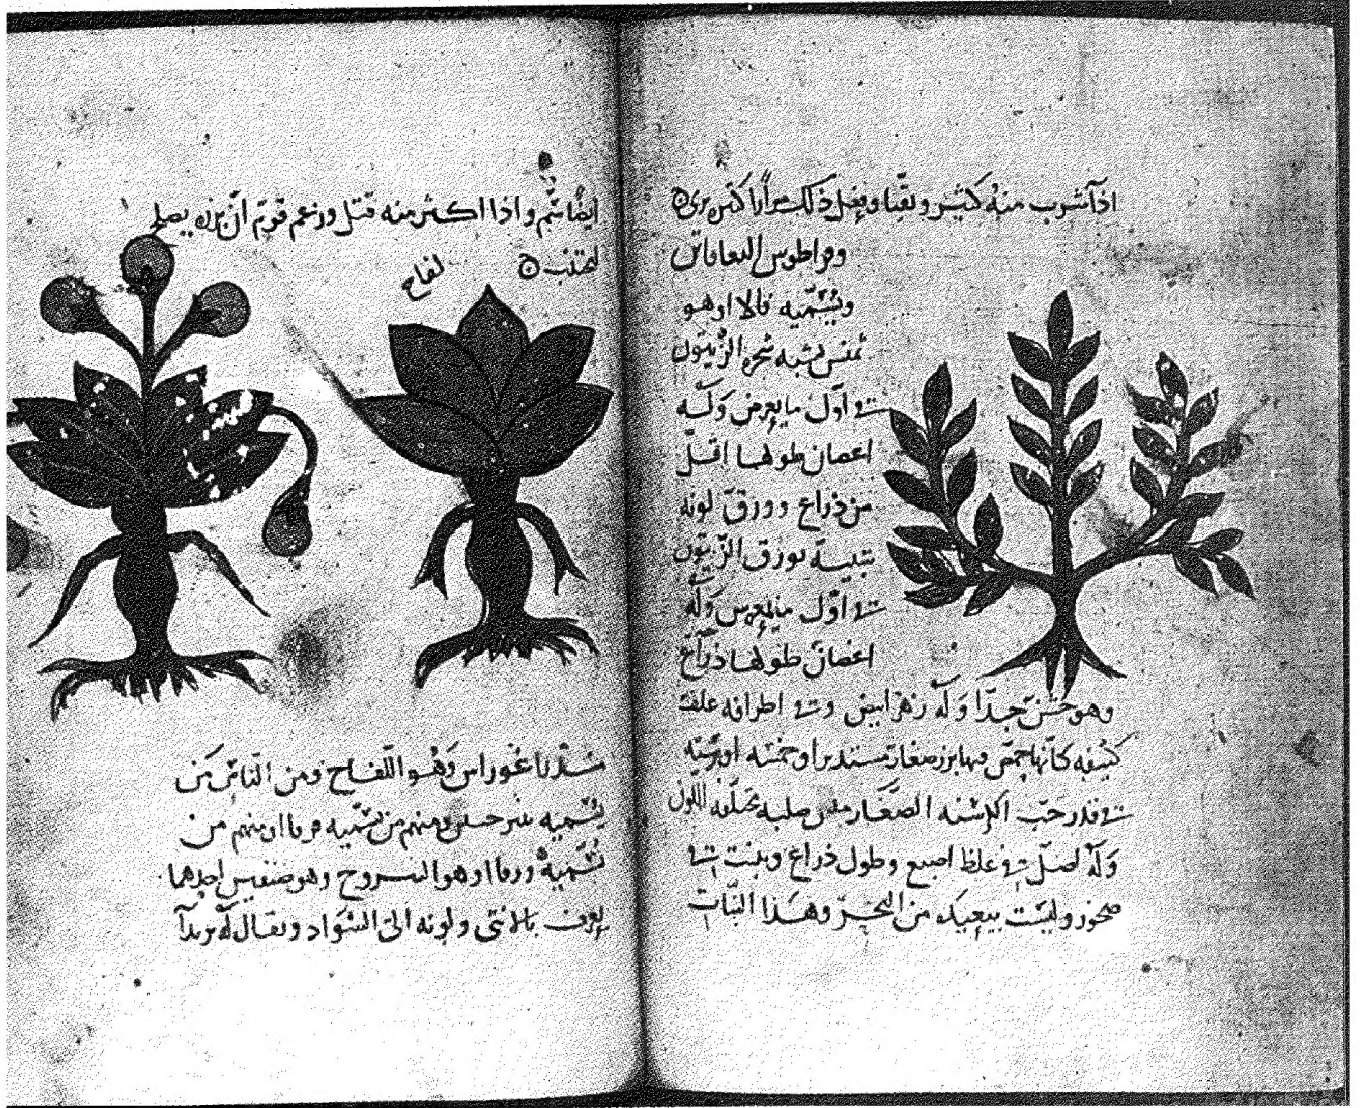 اذا شرب منه كثير وتقيا وفعل ذلك مرارا كثيره
ويسميه قالا اوهو
ثمنس يشبه شجره الزيتون
في اول ما يعرض وله
اغصان طولها اقل
من ذراع وورق لونه
شبيه بورق الزيتون
في اول ما يعرض وله
اغصان طولها ذراع
وهو خشن جدا وله زهر ابيض وفي اطرافه غلف
كثيفه كانها حمص فيها بزر صغار مستدير او خمسه او ستة
في قدر حب الكرسنه الصغار ملس صلبه مختلفه اللون
وله اصل في غلظ اصبع وطول ذراع وينبت في
صخور وليست ببعيده من البحر وهذا النبات
ايضا يسم واذا اكثر منه قتل وزعم قوم ان بزره يصلح
لفاح
وهو اللفاح ومن الناس من
يسميه ومنهم من يسميه ومنهم من
يسميه وهو اليبروح وهو صنفين احدهما
يعرف بالانثى ولونه الى السواد ويقال له